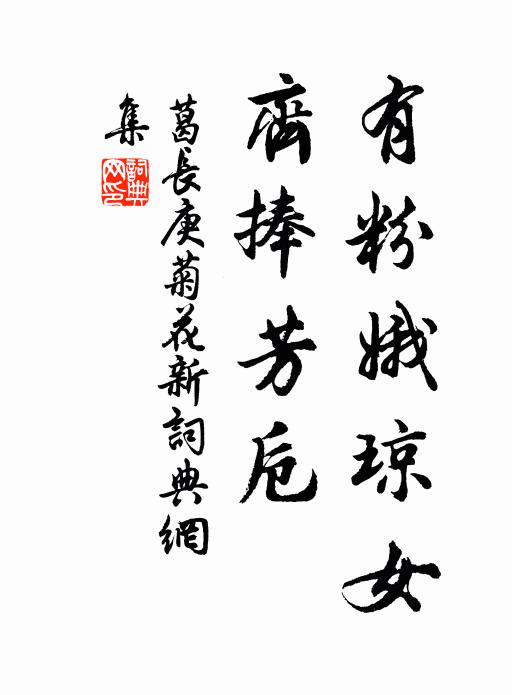 有粉娥琼女
齊捧芳卮
葛長庚菊花新詞典網
集
詞典
网印